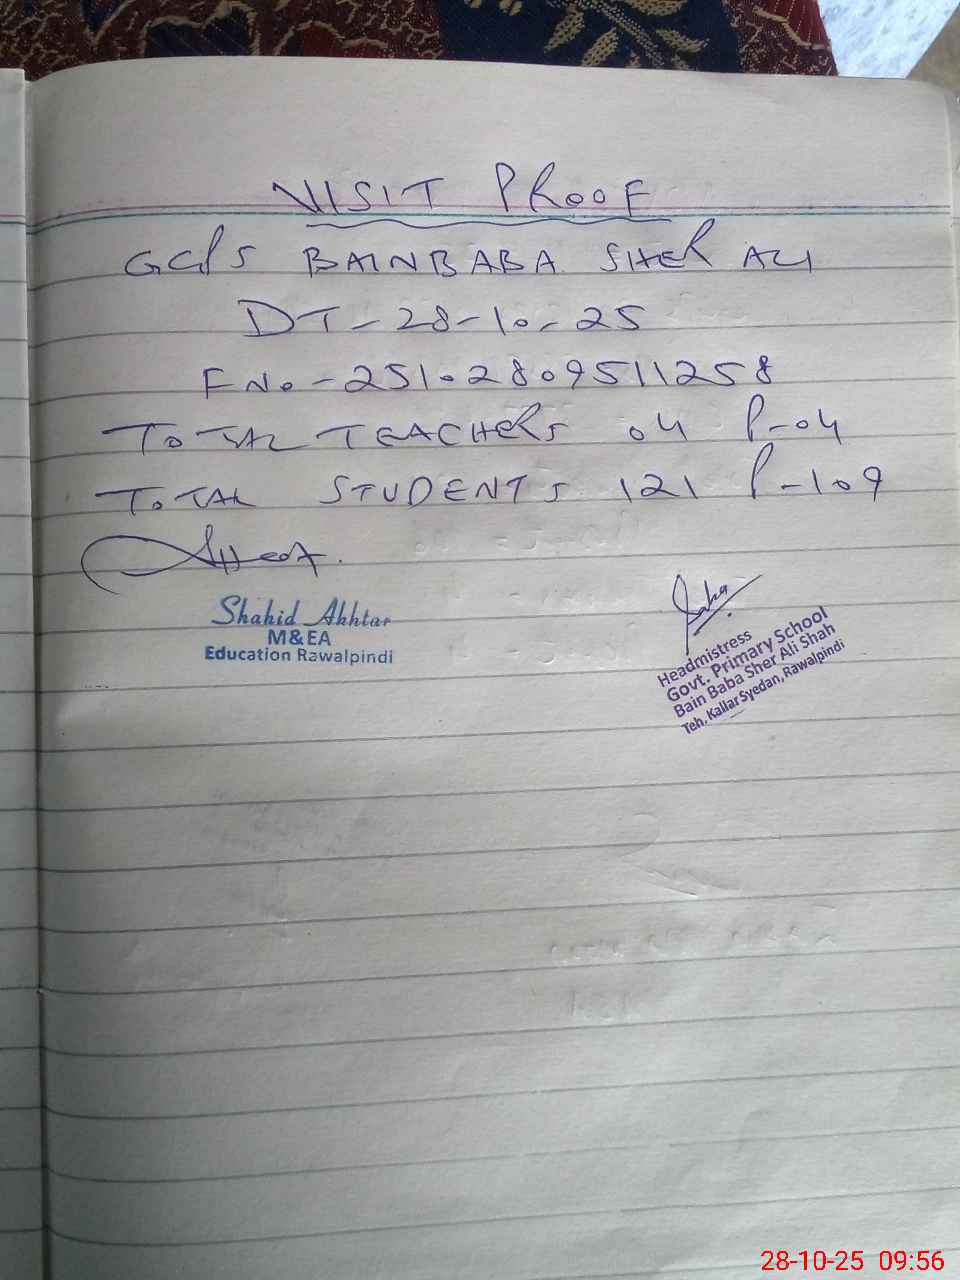 VISIT PROOF
GGPS BAINBABA SHER ALI
DT-28-10-25
F No.-25102809511258
TOTAL TEACHERS 04 P-04
TOTAL STUDENTS 121 P-109
Shahid Akhtar
M&EA
Education Rawalpindi
Headmistress
Govt. Primary School
Bain Baba Sher Ali Shah
Teh, Kallar Syedan, Rawalpindi
28-10-25 09:56